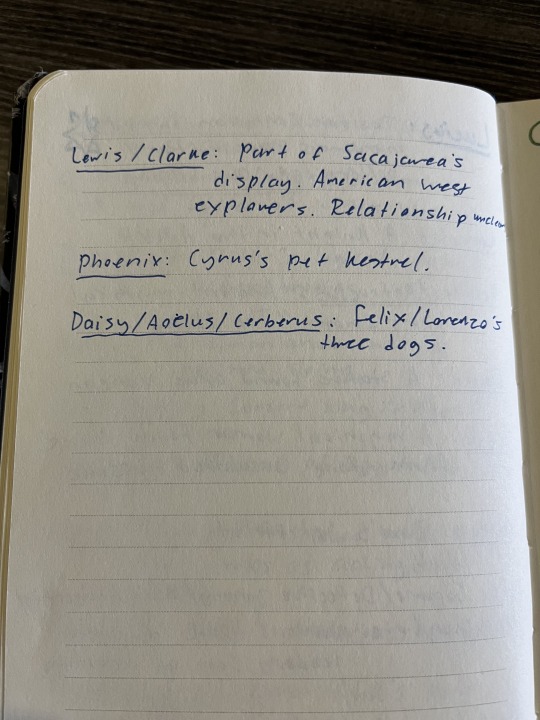 Lewis/Clarke: Part of Sacajawea's
display. American west
explorers. Relationship unclear
Phoenix: Cyrus's pet kestrel.
Daisy/Aoëlus/Cerberus: Felix/Lorenzo's
three dogs.